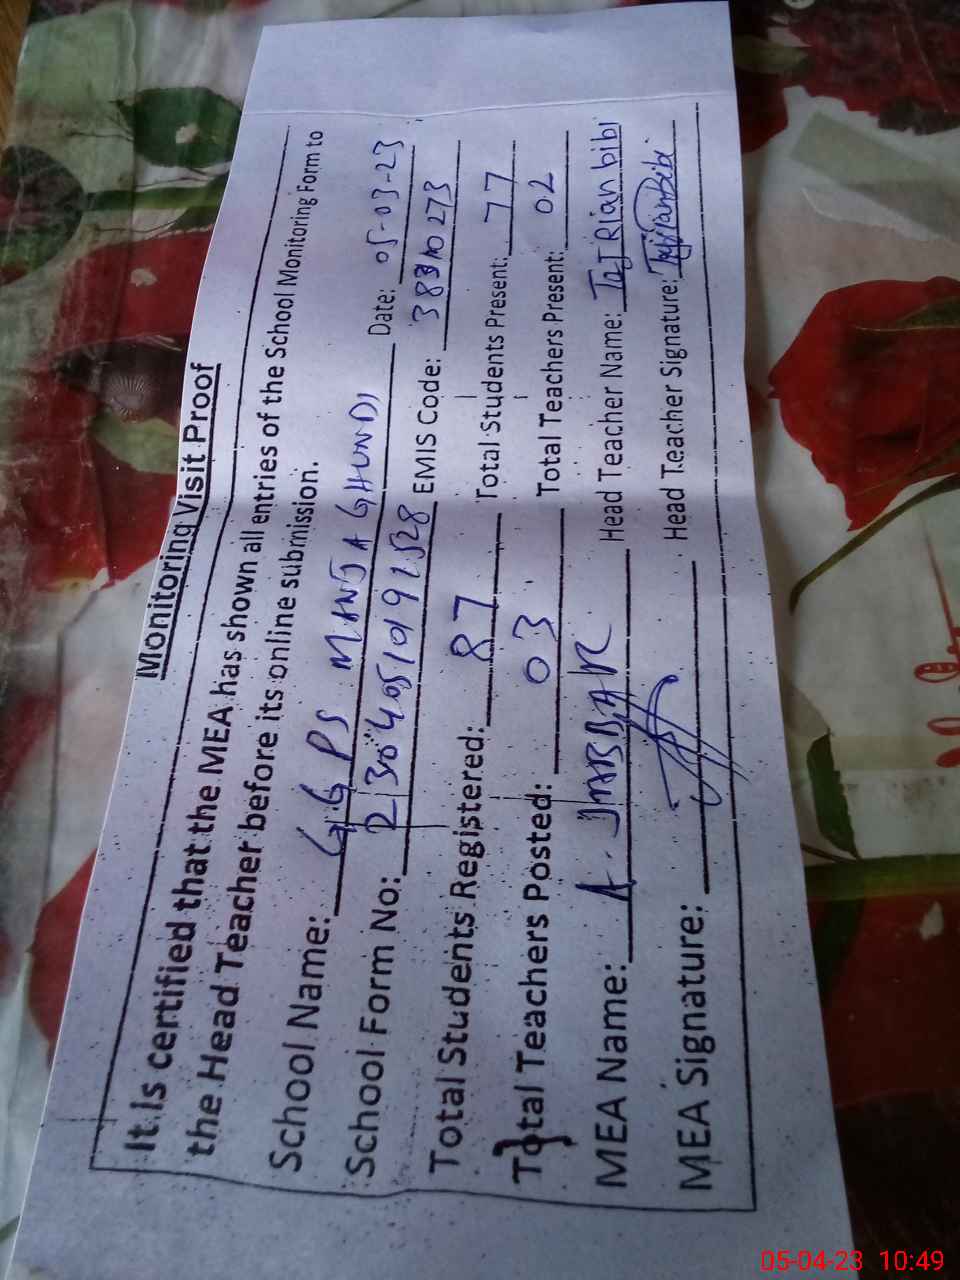 Monitoring Visit Proof
It is certified that the MEA has shown all entries of the School Monitoring Form to
the Head Teacher before its online submission.
School Name: GGPS MANJA GHUNDI Date: 05-03-23
School Form No: EMIS Code:
Total Students Registered: 87 Total Students Present: 77
Total Teachers Posted: 03 Total Teachers Present: 02
MEA Name: A. JABBAR Head Teacher Name: TaJRian bibi
MEA Signature: Head Teacher Signature: Tajrian Bibi
05-04-23 10:49